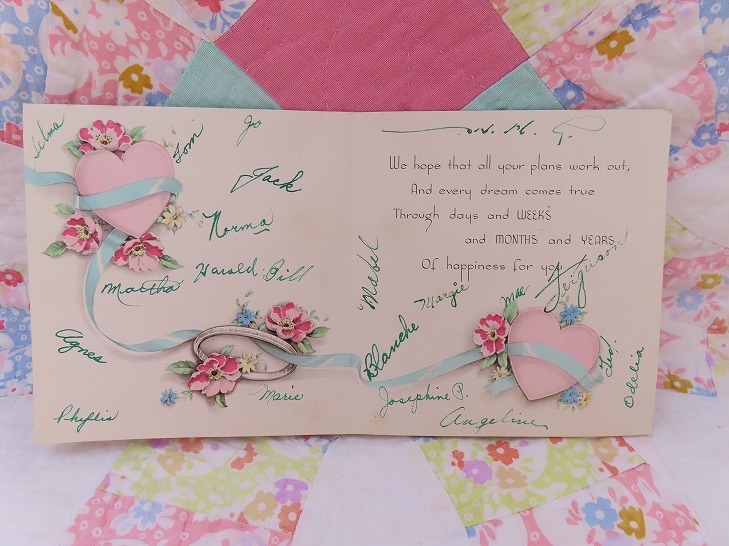 Selma
Tom
Jo
Jack
Norma
Martha
Harold - Bill
Agnes
Marie
Phyllis
We hope that all your plans work out,
And every dream comes true
Through days and WEEKS
and MONTHS and YEARS
Of happiness for you
Mabel
Margie
Mae
Ferguson
Blanche
Josephine P.
Angeline
Odelia